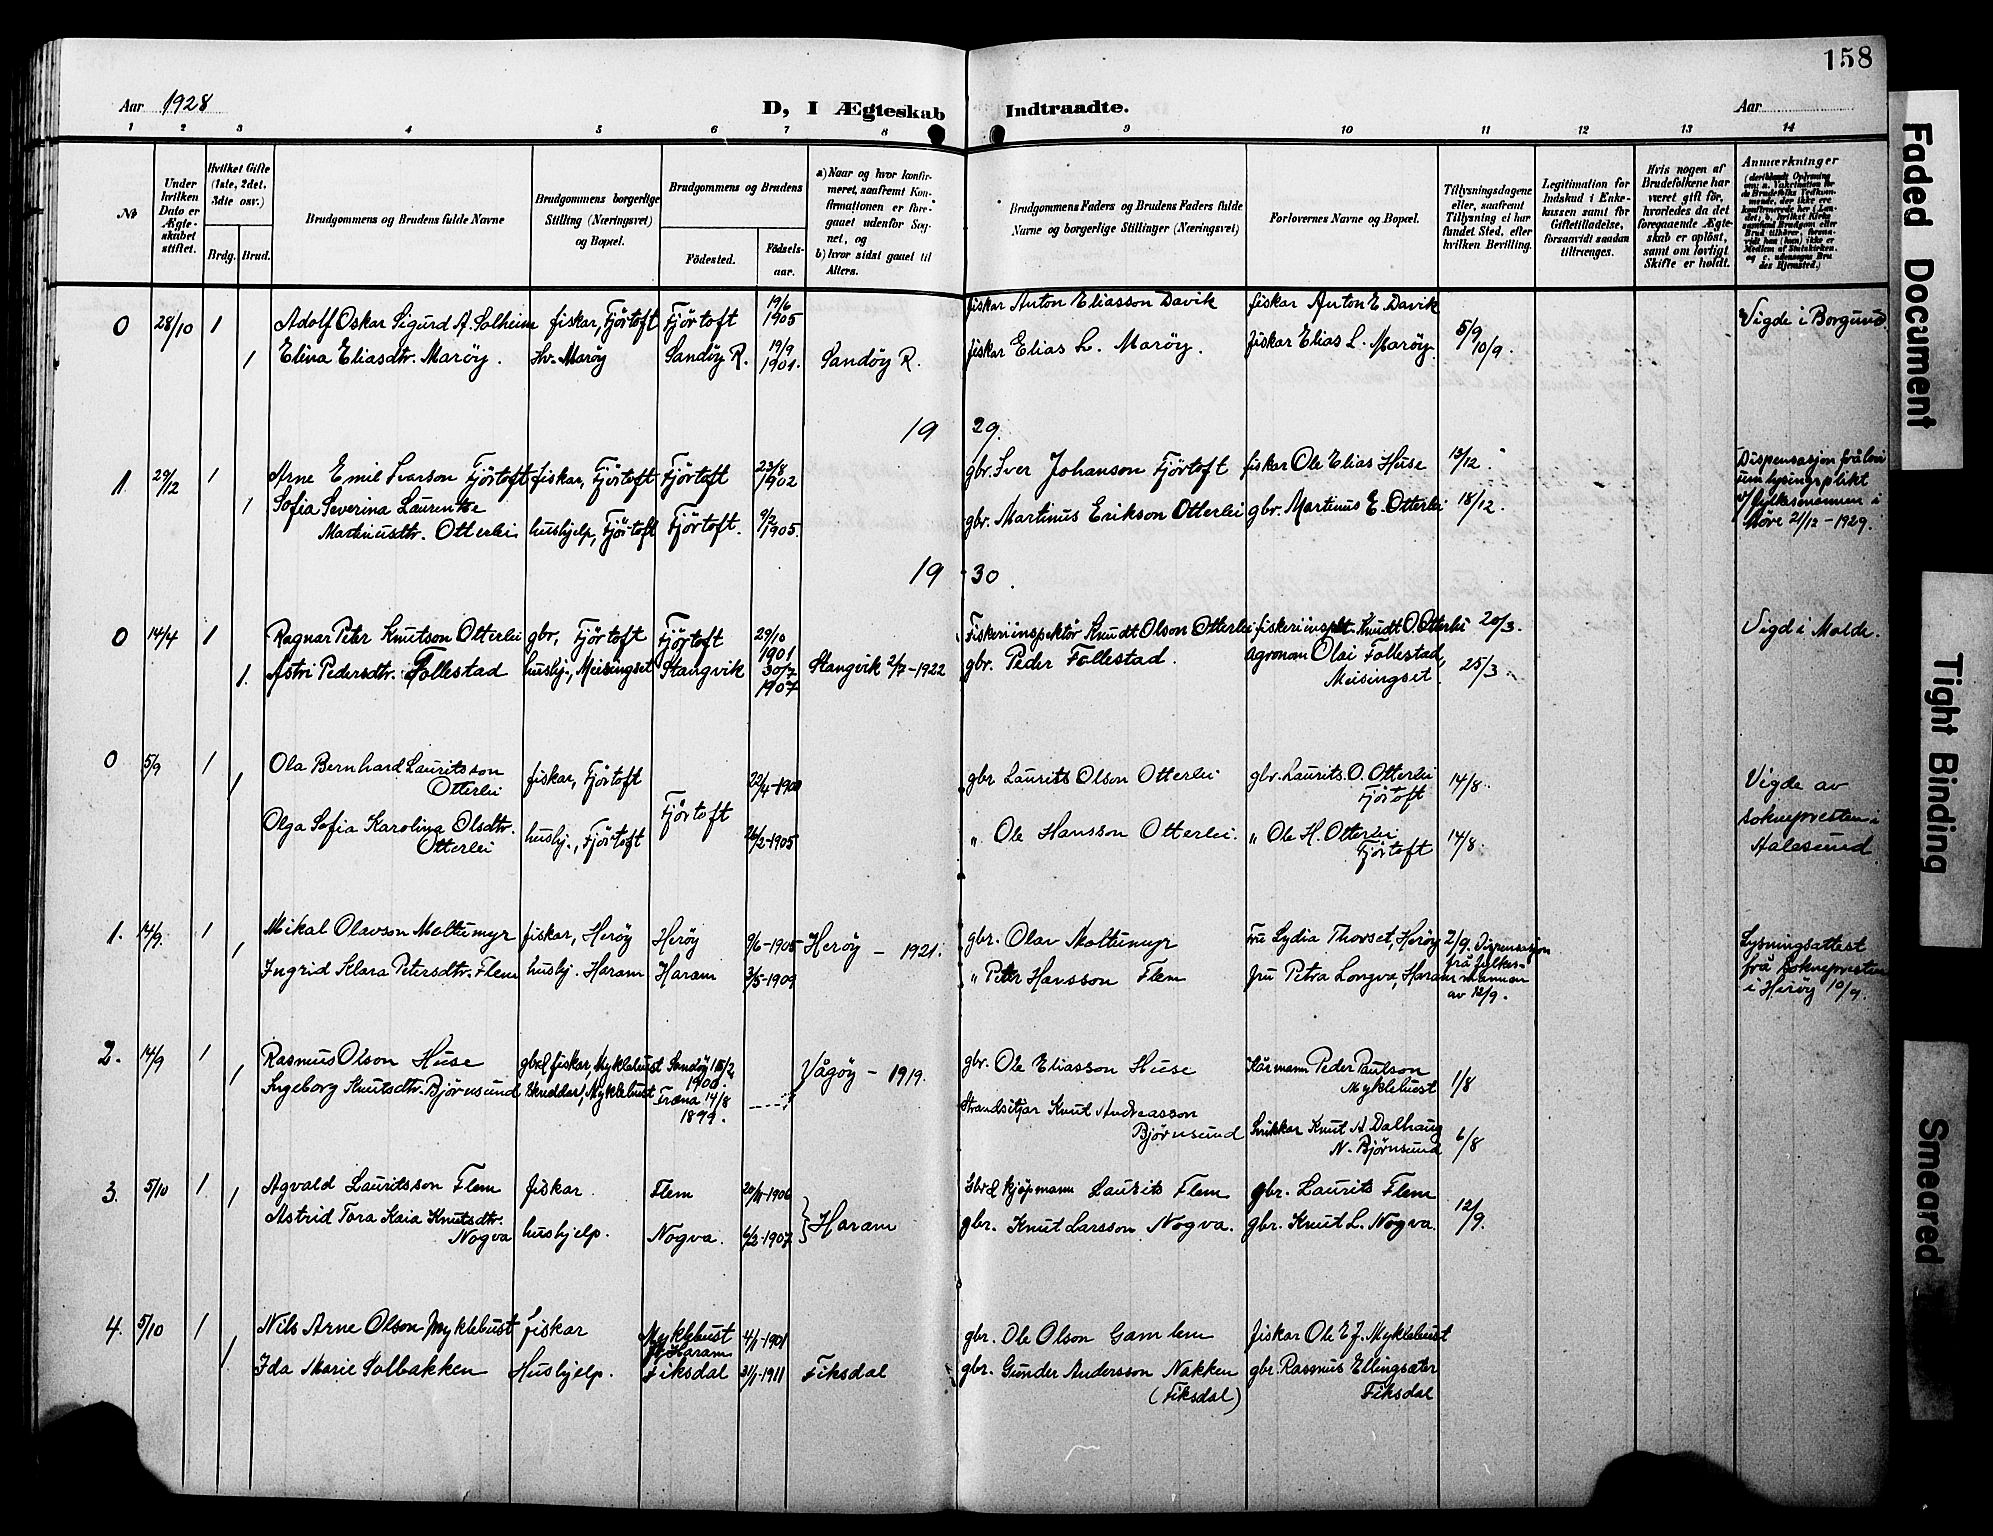 158
Aar 1928
D, I Ægteskab Indtraadte.
Aar
1 2 3 4 5 6 7 8 9 10 11 12 13 14
№
Under hvilken Dato er Ægteskabet stiftet.
Hvilket Gifte (1ste, 2det, 3die osv.)
Brdg. Brud.
Brudgommens og Brudens fulde Navne
Brudgommens borgerlige Stilling (Næringsvei) og Bopæl.
Brudgommens og Brudens
Fødested.
Fødselsaar.
a) Naar og hvor konfirmeret, saafremt Konfirmationen er foregaaet udenfor Sognet, og
b) hvor sidst gaaet til Alters.
Brudgommens Faders og Brudens Faders fulde Navne og borgerlige Stillinger (Næringsvei)
Forlovernes Navne og Bopæl.
Tillysningsdagene eller, saafremt Tillysning ei har fundet Sted, efter hvilken Bevilling.
Legitimation for Indskud i Enkekassen samt for Giftetilladelse, forsaavidt saadan tiltrænges.
Hvis nogen af Brudefolkene har været gift før, hvorledes da det foregaaende Ægteskab er opløst, samt om lovligt Skifte er holdt.
Anmærkninger
0 28/10 1 Adolf Oskar Sigurd A. Solheim fiskar, Fjörtoft Fjörtoft 19/6 1905 fiskar Anton Eliasson Davik fiskar Anton E. Davik 5/9 Vigde i Borgund.
1 Elina Eliasdtr. Maröy. Hv. Maröy Sandöy R. 19/9 1901. Sandöy R. fiskar Elias L. Maröy. fiskar Elias L. Maröy. 10/9.
19 29.
1 29/12 1 Arne Emil Ivarson Fjörtoft fiskar, Fjörtoft Fjörtoft 23/8 1902 gbr. Iver Johanson Fjörtoft fiskar Ole Elias Huse 13/12. Dispensasjon frå
1 Sofia Severina Laurentse
Martinusdtr. Otterlei hushjelp, Fjörtoft Fjörtoft. 1905. gbr. Martinus Erikson Otterlei gbr. Martinus E. Otterlei 18/12. v/ fylkesmannen i
Möre 21/12 - 1929.
19 30.
0 14/4 1 Ragnar Peter Knutson Otterlei gbr, Fjörtoft Fjörtoft 29/10 1901 Fiskeriinspektör Knudt Olson Otterlei fiskeriinspekt. Knudt O. Otterlei 20/3. Vigd i Molde.
1. Astri Pedersdtr. Follestad hushj., Meisingset Stangvik 30/7 1907 Stangvik 2/7 - 1922 gbr. Peder Follestad. agronom Olai Follestad,
Meisingset. 25/3.
0 5/9 1 Ola Bernhard Lauritsson
Otterlei fiskar, Fjörtoft 22/4-1900 gbr Laurits Olson Otterlei gbr. Laurits. O. Otterlei
Fjörtoft 14/8. Vigde av
soknepresten i
Aalesund
1 Olga Sofia Karolina Olsdtr.
Otterlei hushj., Fjörtoft Fjörtoft 26/2-1905 „ Ole Hansson Otterlei. „ Ole H. Otterlei
Fjörtoft 14/8.
1. 14/9. 1 Mikal Olavson Moltumyr fiskar, Heröy Heröy 9/6-1905 Heröy - 1921. gbr. Olav Moltumyr Fru Lydia Thorset, Heröy 2/9. Dispensasjon
frå fylkesmannen
av 12/9. Lysningsattest
frå soknepresten
i Heröy 10/9.
1 Ingrid Klara Petersdtr. Flem hushj. Haram Haram 3/5-1909 „ Peter Hansson Flem fru Petra Longva, Haram
2. 14/9 1 Rasmus Olson Huse gbr & fiskar, Myklebust Sandöy 15/2 1900. gbr. Ole Eliasson Huse Kårmann Peder Paulson
Myklebust 1/8
1 Ingeborg Knutsdtr. Björnsund Skredder, Myklebust Fræna 14/8
1899. Vågöy - 1919. Strandsitjar Knut Andreasson
Björnsund Snikkar Knut A. Dalhaug
N. Björnsund 6/8
3. 5/10 1 Agvald Lauritsson Flem fiskar. Flem 1906 Gbr & kjöpmann Laurits Flem gbr. Laurits Flem 12/9.
1 Astrid Tora Kaia Knutsdtr.
Nogva hushjelp. Nogva. 6/2-1907 Haram gbr. Knut Larsson Nogva. gbr. Knut L. Nogva.
4. 5/10 1 Nils Arne Olson Myklebust fiskar Myklebust
Haram 4/1-1901 gbr. Ole Olson Gamlem fiskar Ole E. J. Myklebust
1 Ida Marie Solbakken Hushjelp. Fiksdal 31/1-1911 Fiksdal gbr. Gunder Andersson Nakken
(Fiksdal) gbr. Rasmus Ellingsæter
Fiksdal
Faded Document
Tight Binding
Smeared